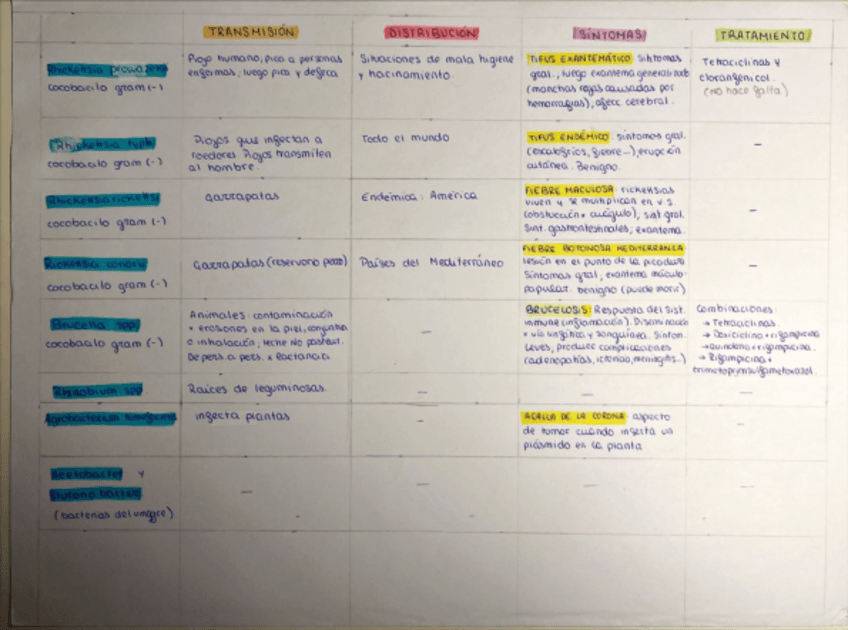 TRANSMISIÓN DISTRIBUCIÓN SÍNTOMAS TRATAMIENTO
Rhickensia prowazekii
cocobacilo gram (-)
Piojo humano, pica a personas
enfermas, luego pica y defeca
Situaciones de mala higiene
y hacinamiento.
TIFUS EXANTEMÁTICO síntomas
gral., luego exantema generalizado
(manchas rojas causadas por
hemorragias), afecc cerebral.
Tetraciclinas y
cloranfenicol.
(no hace falta)
Rhickensia typhi
cocobacilo gram (-)
Piojos que infectan a
roedores. Piojos transmiten
al hombre.
Todo el mundo
TIFUS ENDÉMICO: síntomas gral.
(escalofríos, fiebre...), erupción
cutánea. Benigno.
-
Rhickensia rickettsi
cocobacilo gram (-)
Garrapatas
Endémica: América
FIEBRE MACULOSA: rickensias
viven y se multiplican en v.s.
(obstrucción x coágulo), sínt gral.
Sínt. gastrointestinales, exantema.
-
Rickensia conorii
cocobacilo gram (-)
Garrapatas (reservorio perro)
Países del Mediterráneo
FIEBRE BOTONOSA MEDITERRANEA
Lesión en el punto de la picadura
Síntomas gral, exantema máculo-
papular. benigno (puede morir)
-
Brucella spp
cocobacilo gram (-)
Animales: contaminación
x erosiones en la piel, conjuntiva
o inhalación, leche no pasteut.
De pers. a pers. x lactancia
-
BRUCELOSIS: Respuesta del sist.
inmune (inflamación). Diseminación
x vía linfática y sanguínea. Síntom.
Leves, produce complicaciones
(adenopatías, ictericia, meningitis...)
Combinaciones:
→ Tetraciclinas.
→ Doxiciclina + rifampicina
→ Quinolona + rifampicina.
→ Rifampicina +
trimetoprimsulfametoxazol.
Rhizobium spp
Raíces de leguminosas.
-
-
-
Agrobacterium tumefaciens
infecta plantas
-
AGALLA DE LA CORONA aspecto
de tumor cuando inserta un
plásmido en la planta
-
Acetobacter y
Gluconobacter
(bacterias del vinagre)
-
-
-
-